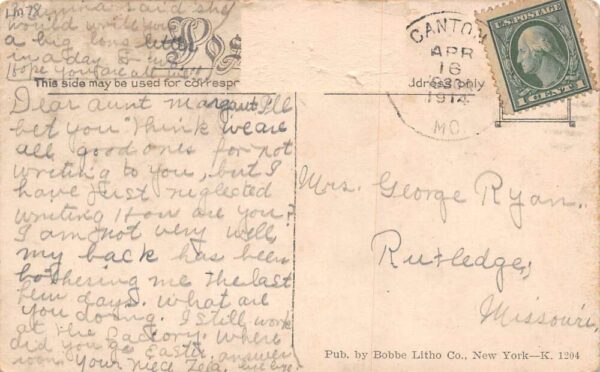 LM78
mma said she
would write you
a big long letter
in a day or two
hope you are all well
Pos
This side may be used for corresp
ddress only
CANTON
APR
16
830
1914
MO.
U.S. POSTAGE
1 CENT 1
Dear aunt Margaut I'll
bet you think we are
all good ones for not
writing to you, but I
have just neglected
writing How are you?
I am not very well,
my back has been
bothering me the last
few days. What are
you doing. I still work
at the factory. Where
did you go Easter, answer
soon Your niece Zela, bye bye
Mrs. George Ryan.
Rutledge,
Missouri,
Pub. by Bobbe Litho Co., New York—K. 1204